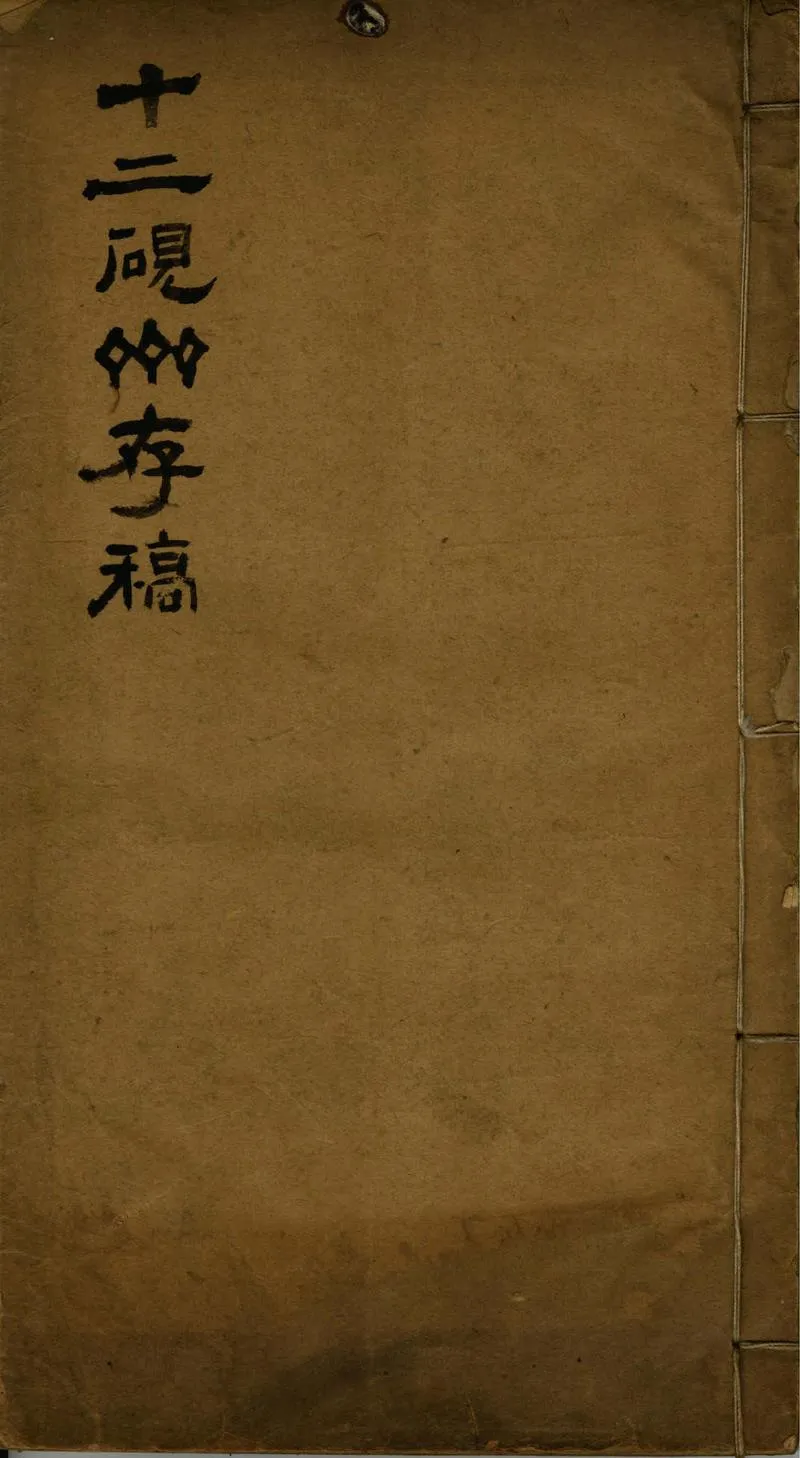 十二硯齊存稿